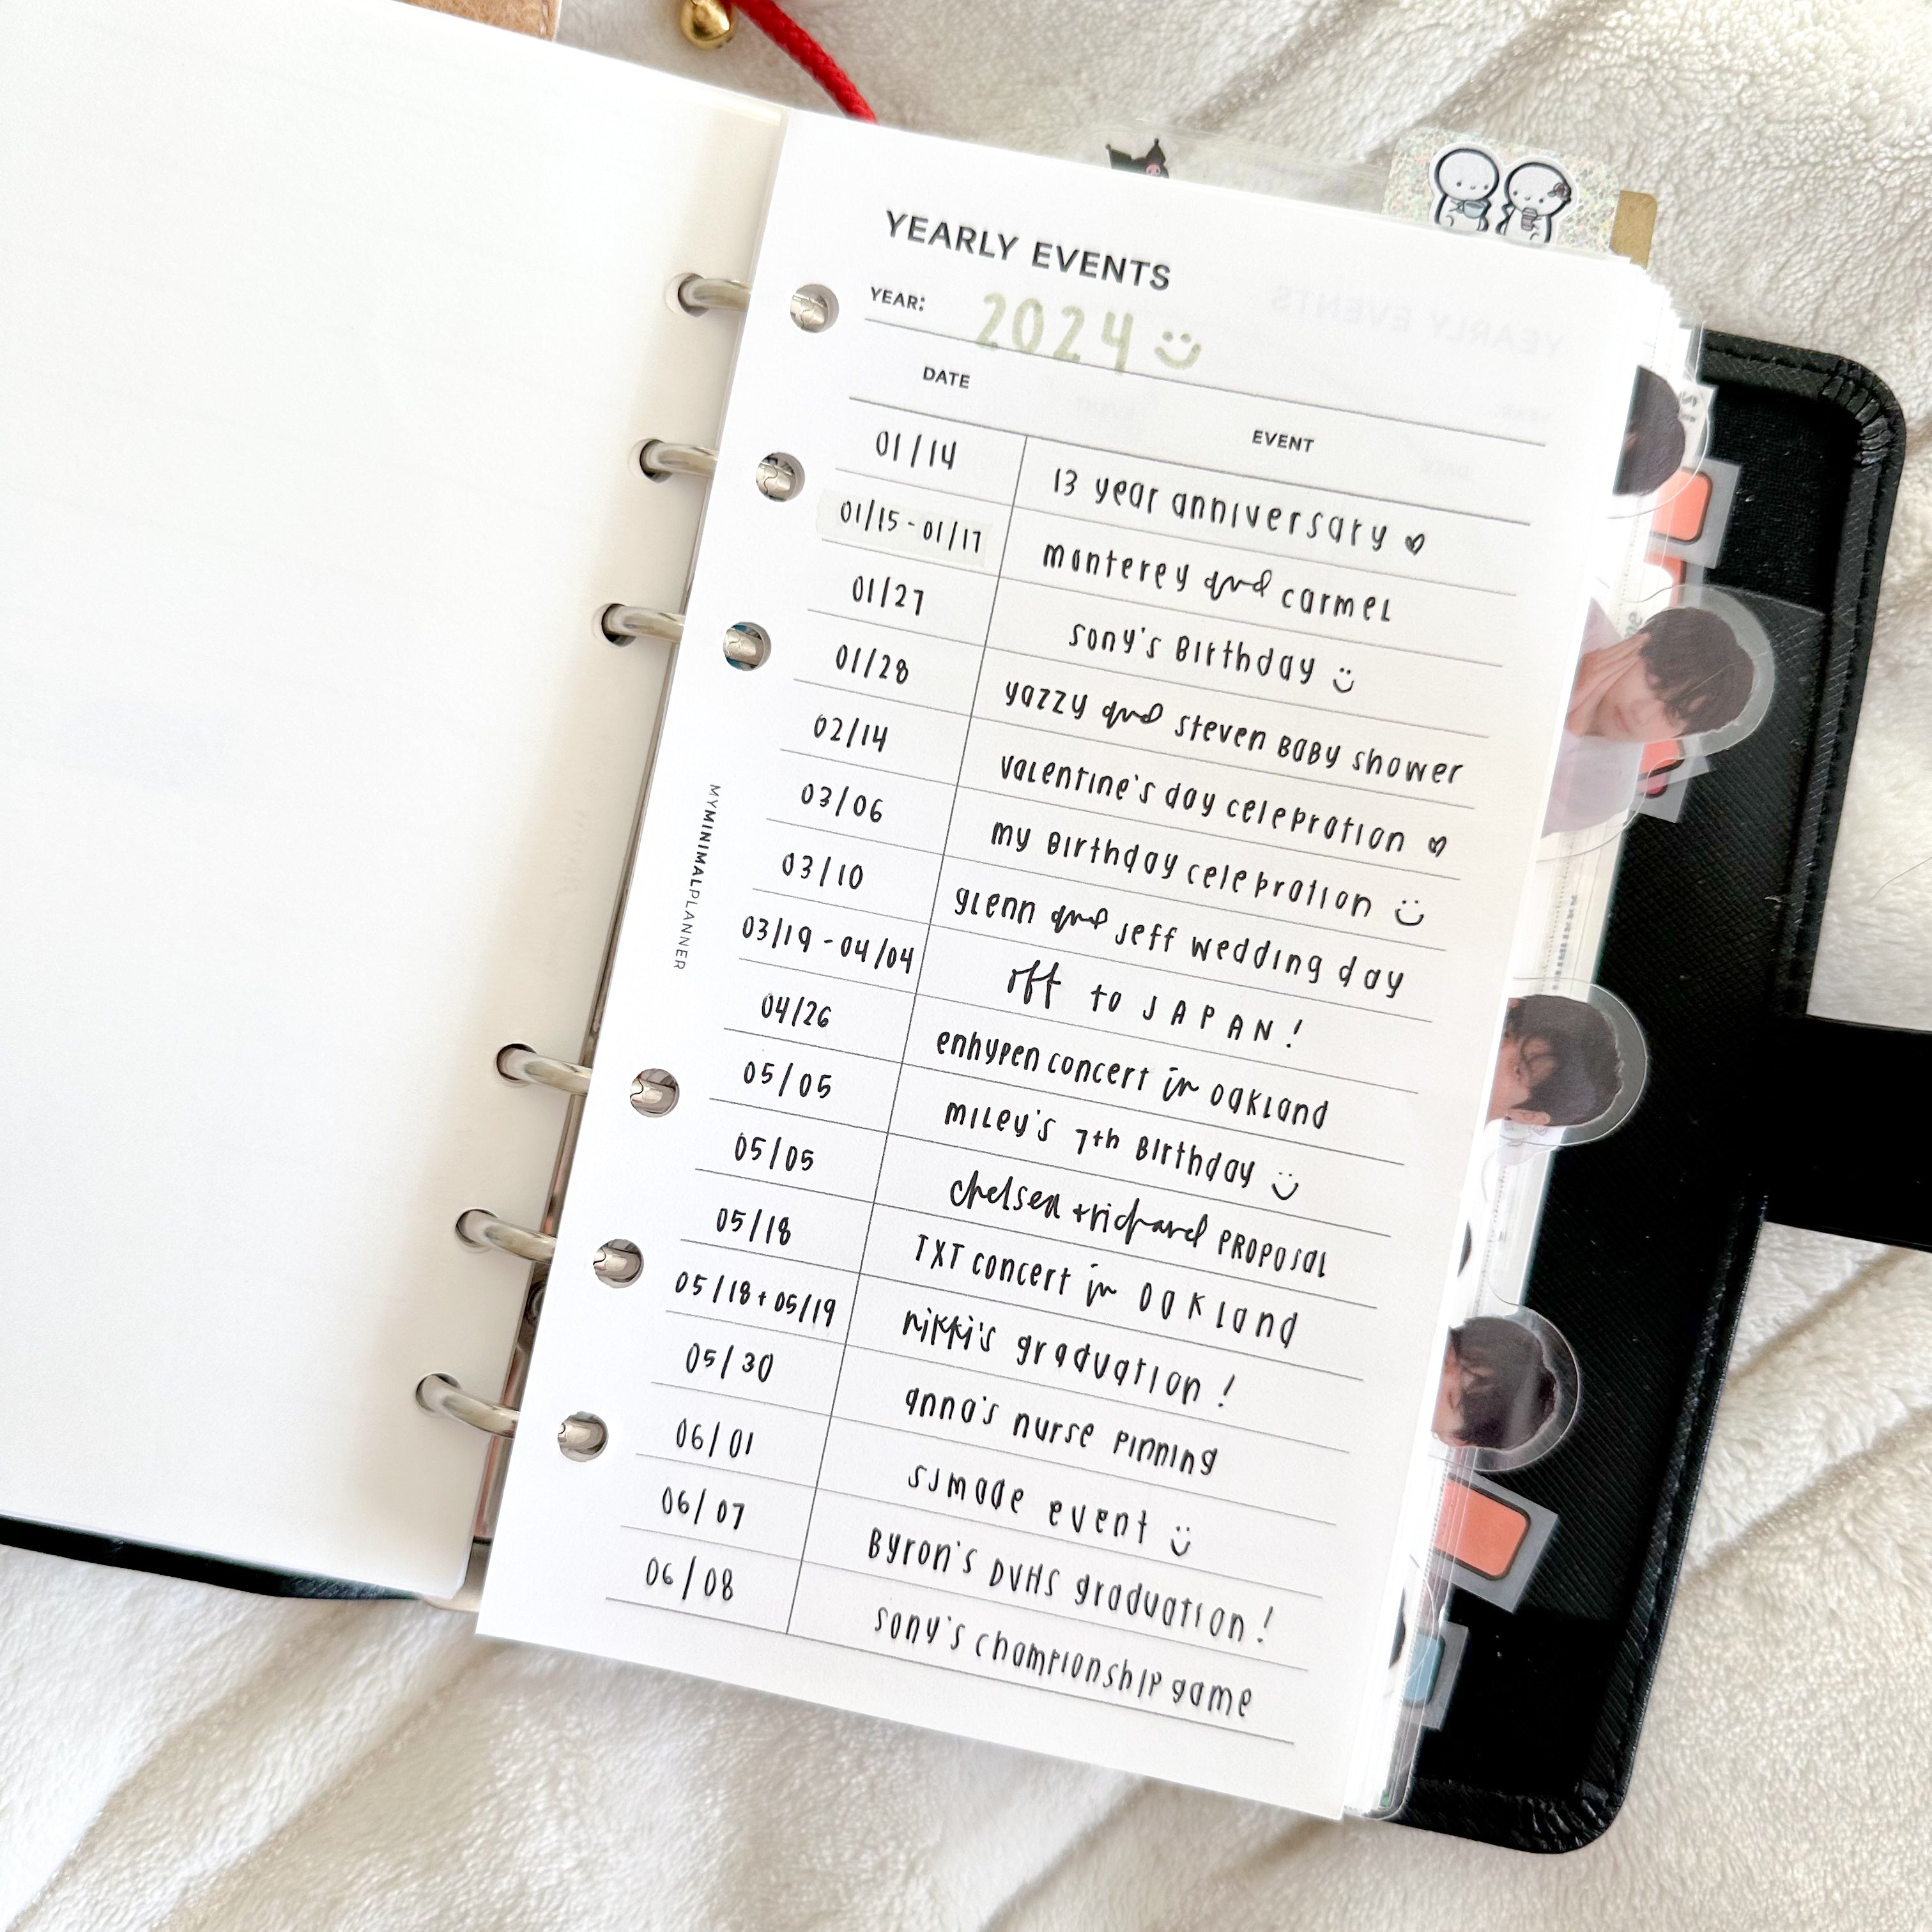 YEARLY EVENTS
YEAR: 2024
DATE EVENT
01/14 13 year anniversary
01/15 - 01/17 monterey and carmel
01/27 sony's Birthday
01/28 yazzy and steven BaBy shower
02/14 valentine's day celebration
03/06 my Birthday celebration
03/10 glenn and jeff wedding day
03/19 - 04/04 off to JAPAN!
04/26 enhypen concert in oakland
05/05 miley's 7th Birthday
05/05 chelsea + richard proposal
05/18 TXT concert in oakland
05/18 + 05/19 nikki's graduation!
05/30 anna's nurse pinning
06/01 sjmade event
06/07 Byron's DVHS graduation!
06/08 sony's championship game
MYMINIMALPLANNER